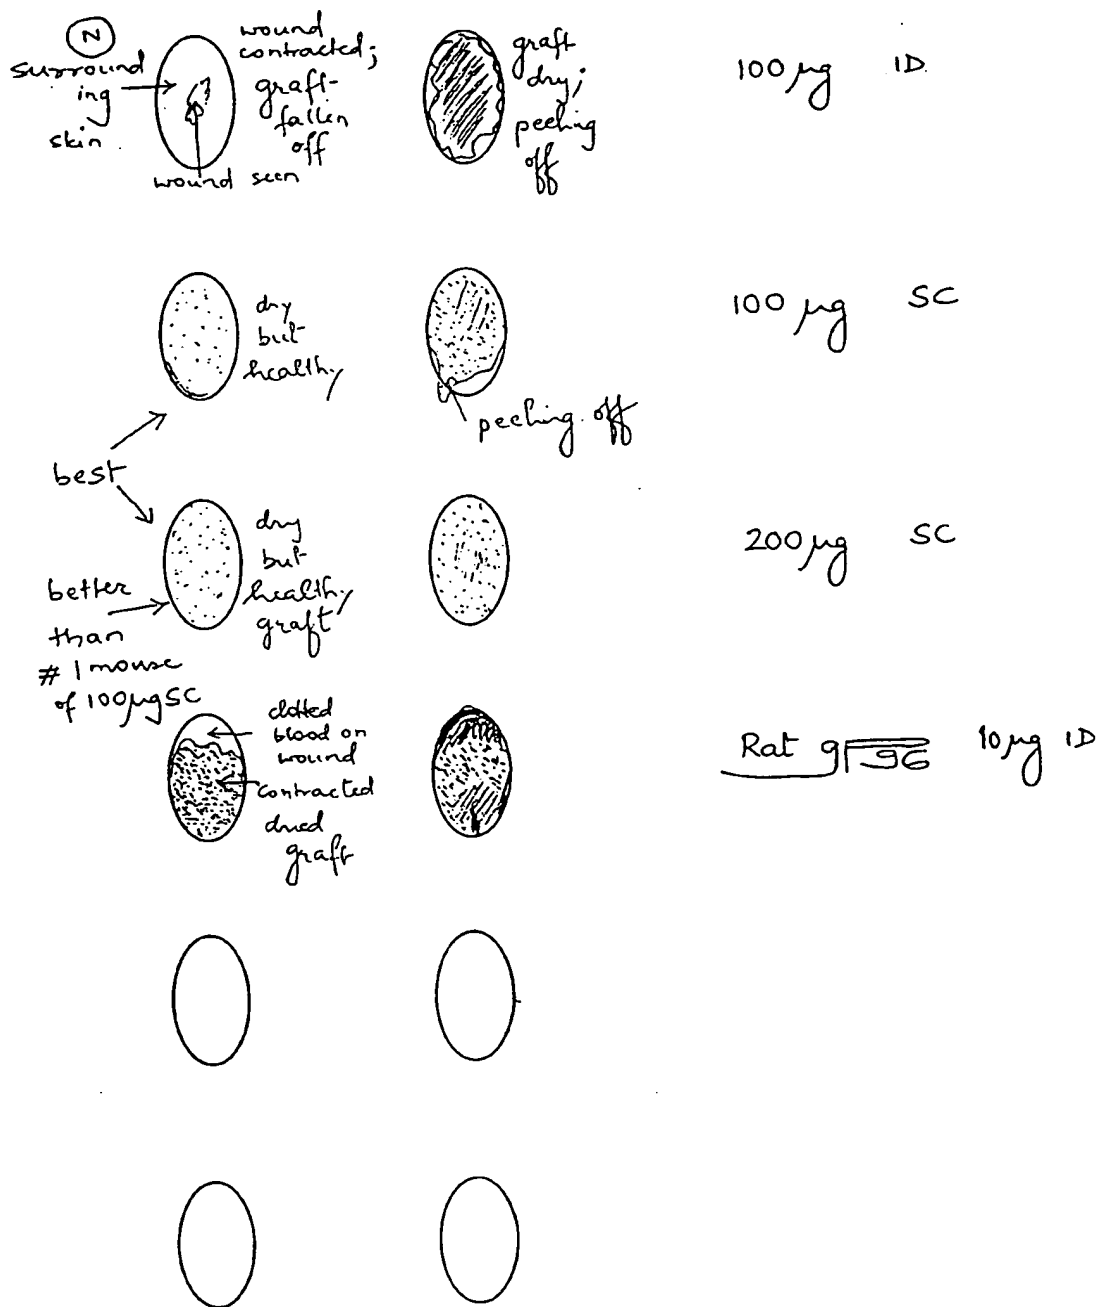 N
surround
ing
skin
wound
contracted;
graft
fallen
off
wound seen
graft
dry;
peeling
off
100 μg ID
dry
but
healthy
peeling off
100 μg SC
best
dry
but
healthy
graft
200 μg SC
better
than
# 1 mouse
of 100μg SC
clotted
blood on
wound
contracted
dried
graft
Rat gp96 10μg ID